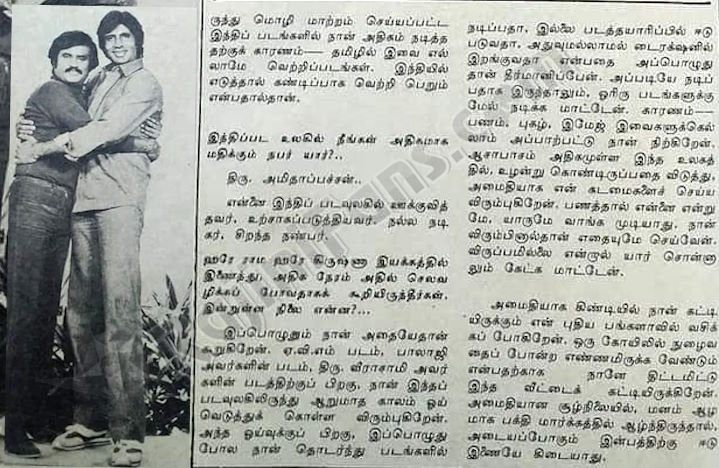 ருந்து மொழி மாற்றம் செய்யப்பட்ட
இந்திப் படங்களில் நான் அதிகம் நடித்த
தற்குக் காரணம்— தமிழில் இவை எல்
லாமே வெற்றிப்படங்கள். இந்தியில்
எடுத்தால் கண்டிப்பாக வெற்றி பெறும்
என்பதால்தான்.
இந்திப்பட உலகில் நீங்கள் அதிகமாக
மதிக்கும் நபர் யார்?..
திரு. அமிதாப்பச்சன்..
என்னை இந்திப் படவுலகில் ஊக்குவித்
தவர், உற்சாகப்படுத்தியவர். நல்ல நடி
கர், சிறந்த நண்பர்.
ஹரே ராம ஹரே கிருஷ்ணா இயக்கத்தில்
இணைந்து, அதிக நேரம் அதில் செலவ
ழிக்கப் போவதாகக் கூறியிருந்தீர்கள்.
இன்றுள்ள நிலை என்ன?...
இப்பொழுதும் நான் அதையேதான்
கூறுகிறேன். ஏ.வி.எம் படம், பாலாஜி
அவர்களின் படம், திரு. வீராசாமி அவர்
களின் படத்திற்குப் பிறகு, நான் இந்தப்
படவுலகிலிருந்து ஆறுமாத காலம் ஓய்
வெடுத்துக் கொள்ள விரும்புகிறேன்.
அந்த ஓய்வுக்குப் பிறகு, இப்பொழுது
போல நான் தொடர்ந்து படங்களில்
நடிப்பதா, இல்லை படத்தயாரிப்பில் ஈடு
படுவதா, அதுவுமல்லாமல் டைரக்‌ஷனில்
இறங்குவதா என்பதை அப்பொழுது
தான் தீர்மானிப்பேன். அப்படியே நடிப்
பதாக இருந்தாலும், ஓரிரு படங்களுக்கு
மேல் நடிக்க மாட்டேன். காரணம்—
பணம், புகழ், இமேஜ் இவைகளுக்கெல்
லாம் அப்பாற்பட்டு நான் நிற்கிறேன்.
ஆசாபாசம் அதிகமுள்ள இந்த உலகத்
தில், உழன்று கொண்டிருப்பதை விடுத்து,
அமைதியாக என் கடமைகளைச் செய்ய
விரும்புகிறேன். பணத்தால் என்னை என்று
மே, யாருமே வாங்க முடியாது. நான்
விரும்பினால்தான் எதையுமே செய்வேன்.
விருப்பமில்லை என்றால் யார் சொன்னா
லும் கேட்க மாட்டேன்.
அமைதியாக கிண்டியில் நான் கட்டி
யிருக்கும் என் புதிய பங்களாவில் வசிக்
கப் போகிறேன். ஒரு கோயிலில் நுழைவ
தைப் போன்ற எண்ணமிருக்க வேண்டும்
என்பதற்காக நானே திட்டமிட்டு
இந்த வீட்டைக் கட்டியிருக்கிறேன்.
அமைதியான சூழ்நிலையில், மனம் ஆழ
மாக பக்தி மார்க்கத்தில் ஆழ்ந்திருந்தால்,
அடையப்போகும் இன்பத்திற்கு ஈடு
இணையே கிடையாது.